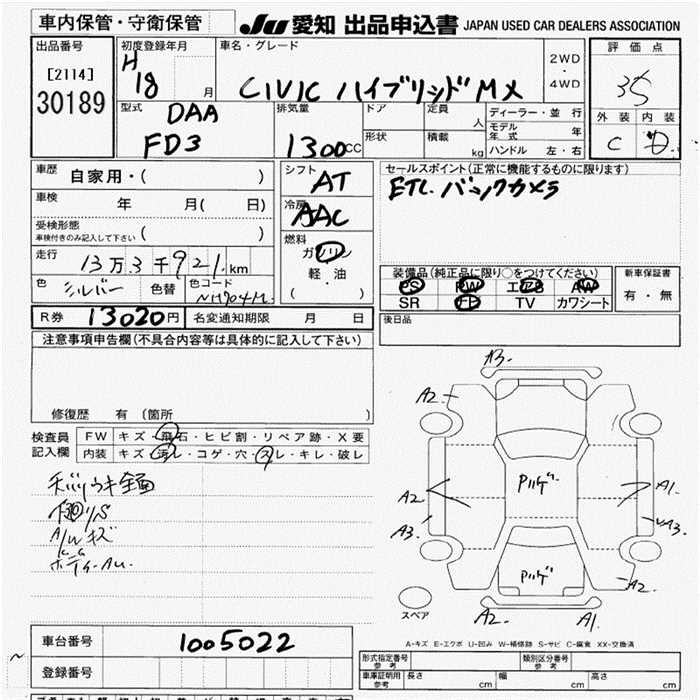 車内保管・守衛保管
JU 愛知 出品申込書 JAPAN USED CAR DEALERS ASSOCIATION
出品番号
[2114]
30189
初度登録年月
H
18 月
車名・グレード
CIVIC ハイブリッド MX
2WD
・
4WD
評価点
35
外装 内装
C D
型式
DAA
FD3
排気量
1300cc
ドア
形状
定員 人
積載 kg
ディーラー・並行
モデル年式 年
ハンドル 左・右
車歴
自家用・( )
車検
年 月( 日)
受検形態
車検付きのみ記入して下さい ( )
走行
13万3千921.km
色
シルバー
色替
色コード
NH704M.
シフト
AT
冷房
AAC
燃料
ガソリン
軽油
( ・ )
セールスポイント(正常に機能するものに限ります)
ETC. バックカメラ
装備品(純正品に限り○をつけてください)
PS PW エアB AW
SR TV カワシート
新車保証書
有・無
後日品
R券 13020円 名変通知期限 月 日
注意事項申告欄(不具合内容等は具体的に記入して下さい)
修復歴 有(箇所 )
検査員
記入欄
FW キズ・飛石・ヒビ割・リペア跡・X要
内装 キズ・汚レ・コゲ・穴・スレ・キレ・破レ
A/W キズ
A3.
A2.
A2
A3.
Pハゲ
A1.
A3.
Pハゲ
A2.
A2
A1.
スペア
A-キズ E-エクボ U-凹み W-補修跡 S-サビ C-腐食 XX-交換済
車台番号 1005022
登録番号
形式指定番号
参考
類別区分番号
参考
車庫証明用
参考
長さ cm 幅 cm 高さ cm